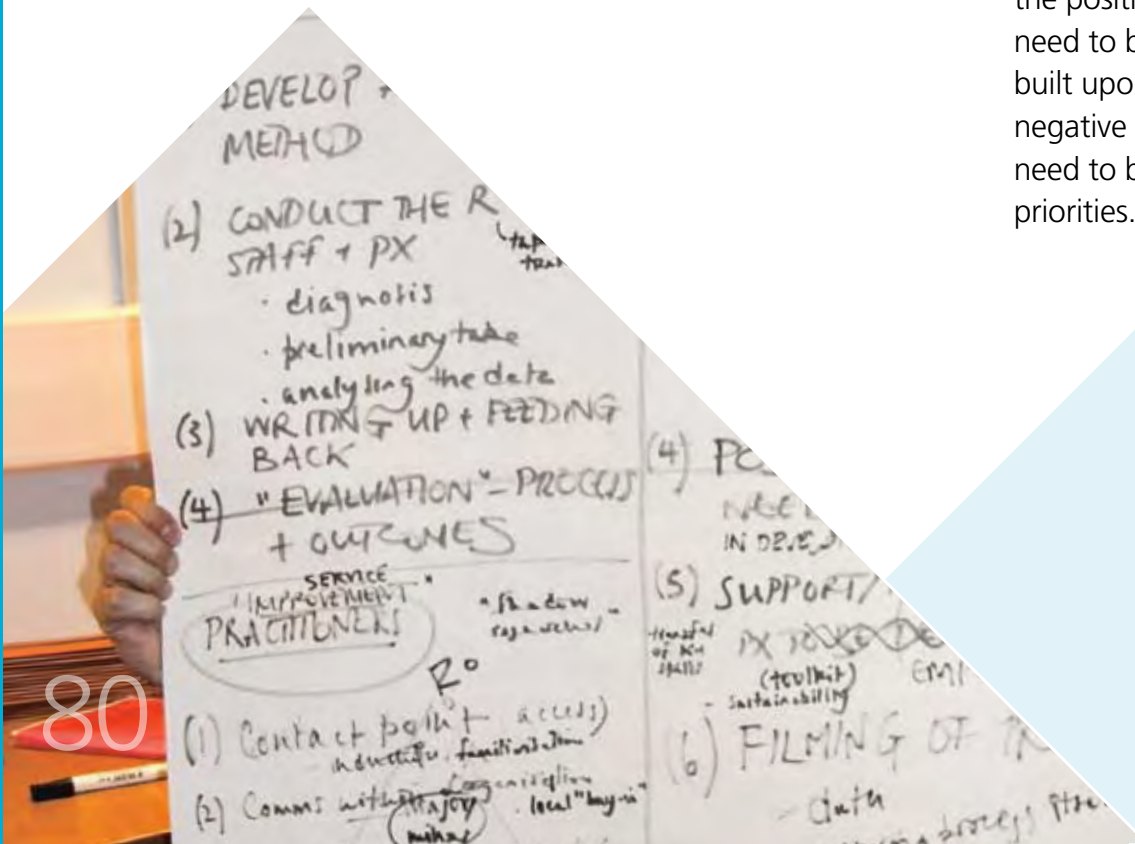 the positi
need to b
built upo
negative
need to b
priorities.
DEVELOP +
METHOD
(2) CONDUCT THE R
STAFF + PX
tap
tran
· diagnosis
· preliminary take
· analysing the data
(3) WRITING UP + FEEDING
BACK
(4) "EVALUATION" - PROCESS
+ OUTCOMES
SERVICE
IMPROVEMENT
PRACTITIONERS
"Shadow
researcher"
R°
(1) Contact point access)
induction, familiarisation
(2) Comms with organisation
Major
local "buy-in"
(4) PO
NEE
IN DE
(5) SUPPORT/
transfer
of
skills
PX
(toolkit)
EM
- sustainability
(6) FILMING OF
process
80